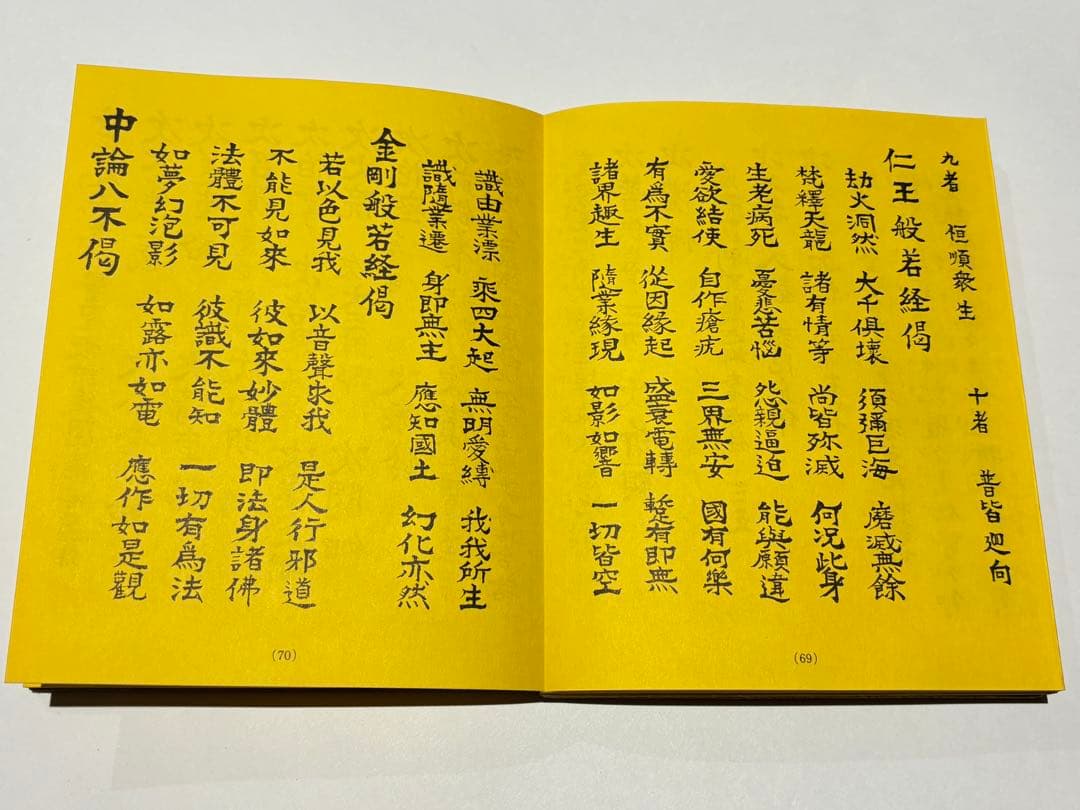 九者 恒順衆生 十者 普皆迴向
仁王般若経偈
劫火洞然 大千俱壞 須彌巨海 磨滅無餘
梵釋天龍 諸有情等 尚皆殄滅 何況此身
生老病死 憂悲苦惱 怨親逼迫 能與願違
愛欲結使 自作瘡疣 三界無安 國有何樂
有為不實 從因縁起 盛衰電轉 蹔有即無
諸界趣生 隨業縁現 如影如響 一切皆空
(69)
識由業漂 乘四大起 無明愛縛 我我所生
識隨業遷 身即無主 應知國土 幻化亦然
金剛般若経偈
若以色見我 以音聲求我 是人行邪道
不能見如來 彼如來妙體 即法身諸佛
法體不可見 彼識不能知 一切有為法
如夢幻泡影 如露亦如電 應作如是觀
中論八不偈
(70)